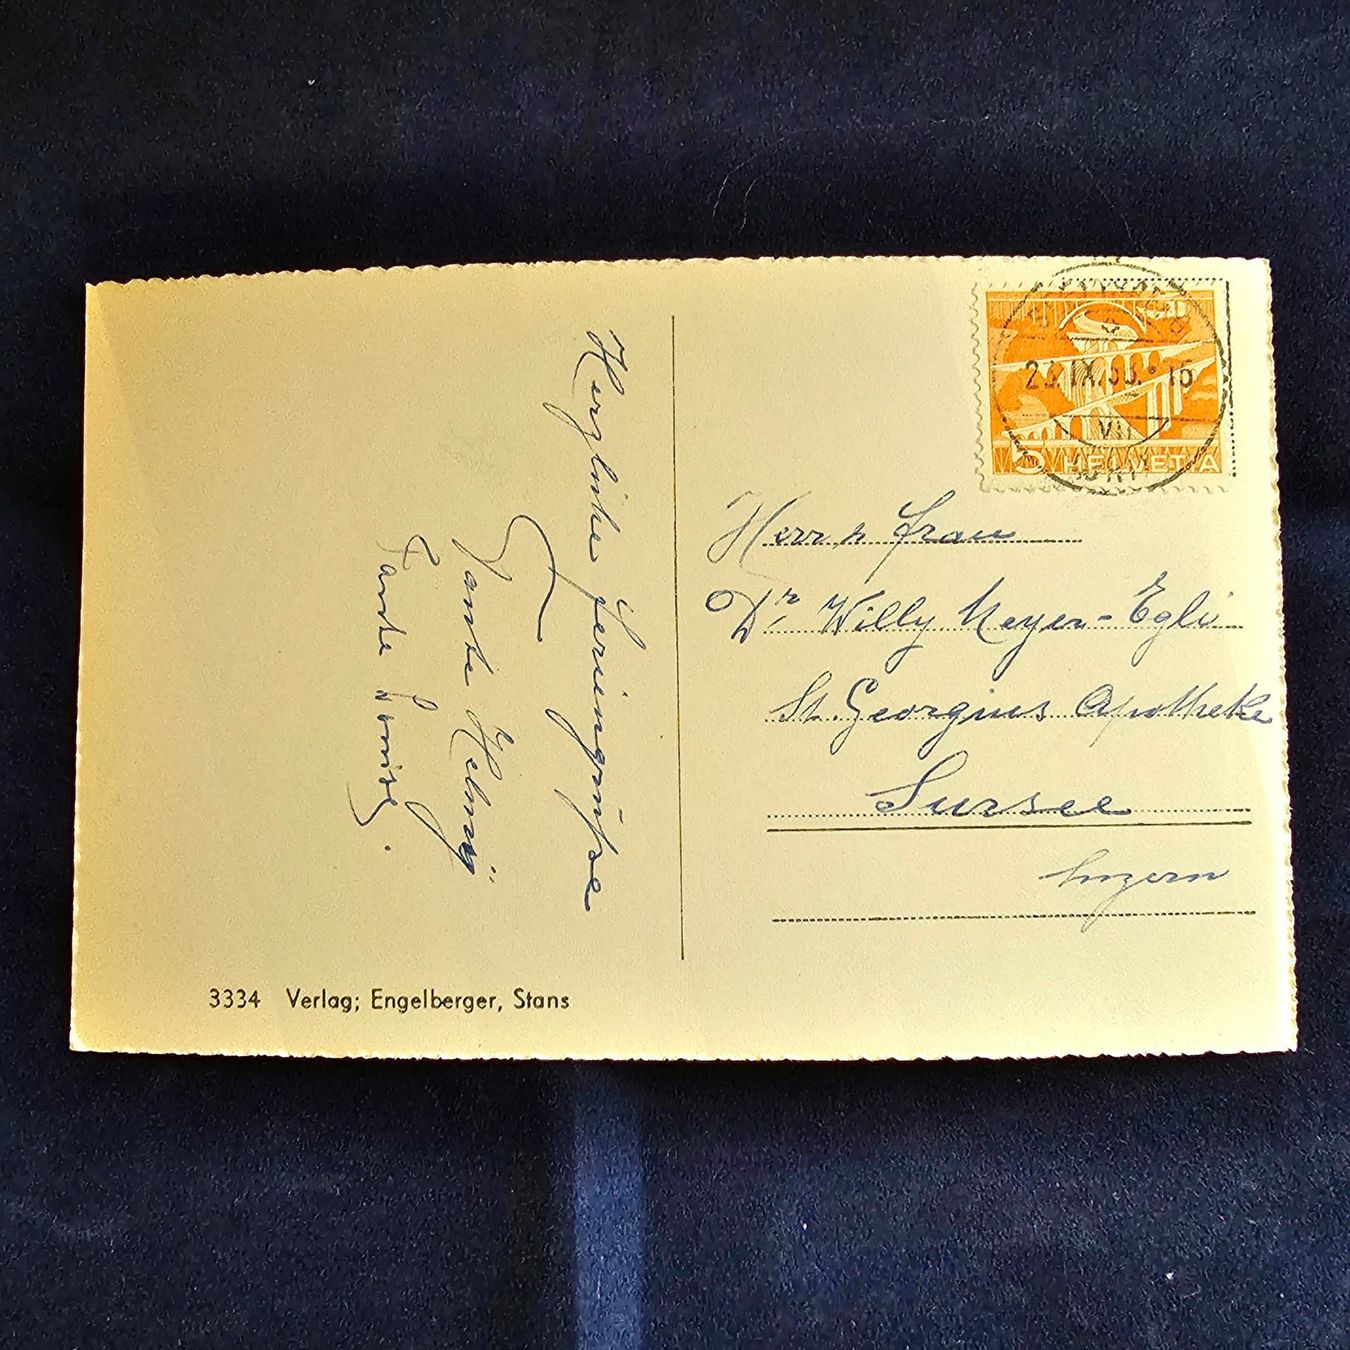 Herzliche Feriengrüsse
Tante Helmy
Tante Louise.
3334 Verlag; Engelberger, Stans
5 HELVETIA
IX. 16
VII
Herr & Frau
Dr. Willy Meyer-Egli
St. Georgius Apotheke
Sursee
Luzern